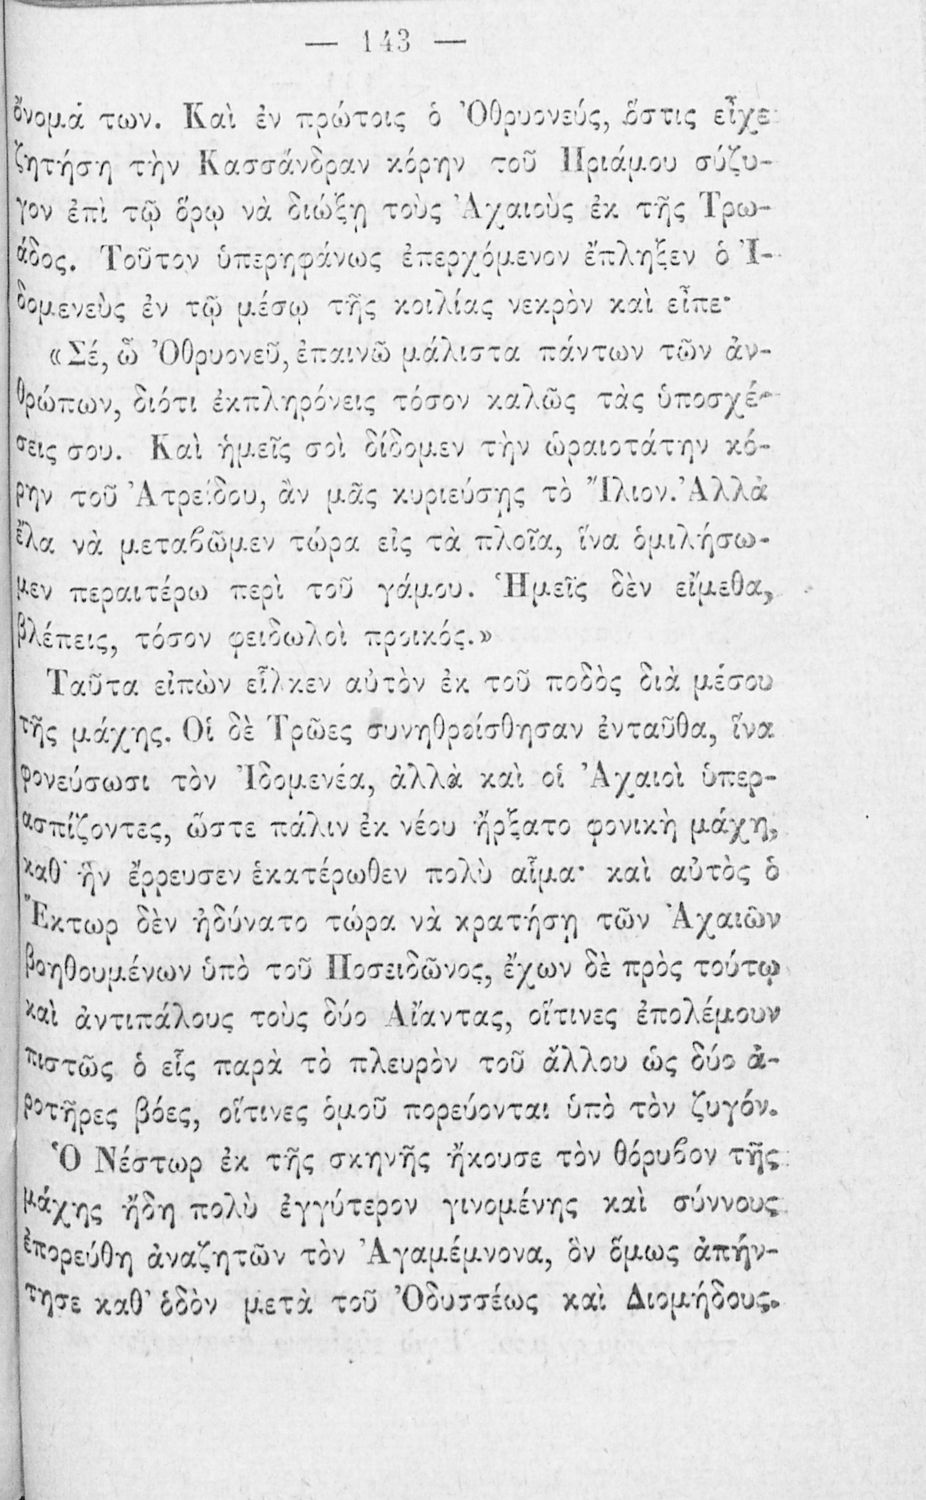 — 143 —
ὄνομά των. Καὶ ἐν πρώτοις ὁ Ὀθρυονεύς, ὅστις εἶχε
ζητήσῃ τὴν Κασσάνδραν κόρην τοῦ Πριάμου σύζυ-
γον ἐπὶ τῷ ὅρῳ νὰ διώξῃ τοὺς Ἀχαιοὺς ἐκ τῆς Τρω-
άδος. Τοῦτον ὑπερηφάνως ἐπερχόμενον ἔπληξεν ὁ Ἰ-
δομενεὺς ἐν τῷ μέσῳ τῆς κοιλίας νεκρὸν καὶ εἶπε·
«Σέ, ὦ Ὀθρυονεῦ, ἐπαινῶ μάλιστα πάντων τῶν ἀν-
θρώπων, διότι ἐκπληρόνεις τόσον καλῶς τὰς ὑποσχέ-
σεις σου. Καὶ ἡμεῖς σοὶ δίδομεν τὴν ὡραιοτάτην κό-
ρην τοῦ Ἀτρείδου, ἂν μᾶς κυριεύσῃς τὸ Ἴλιον. Ἀλλὰ
ἔλα νὰ μεταβῶμεν τώρα εἰς τὰ πλοῖα, ἵνα ὁμιλήσω-
μεν περαιτέρω περὶ τοῦ γάμου. Ἡμεῖς δὲν εἴμεθα,
βλέπεις, τόσον φειδωλοὶ προικός.»
Ταῦτα εἰπὼν εἷλκεν αὐτὸν ἐκ τοῦ ποδὸς διὰ μέσου
τῆς μάχης. Οἱ δὲ Τρῶες συνηθροίσθησαν ἐνταῦθα, ἵνα
φονεύσωσι τὸν Ἰδομενέα, ἀλλὰ καὶ οἱ Ἀχαιοὶ ὑπερ-
ασπίζοντες, ὥστε πάλιν ἐκ νέου ἤρξατο φονικὴ μάχη,
καθ' ἣν ἔρρευσεν ἑκατέρωθεν πολὺ αἷμα· καὶ αὐτὸς ὁ
Ἕκτωρ δὲν ἠδύνατο τώρα νὰ κρατήσῃ τῶν Ἀχαιῶν
βοηθουμένων ὑπὸ τοῦ Ποσειδῶνος, ἔχων δὲ πρὸς τούτῳ
καὶ ἀντιπάλους τοὺς δύο Αἴαντας, οἵτινες ἐπολέμουν
πιστῶς ὁ εἷς παρὰ τὸ πλευρὸν τοῦ ἄλλου ὡς δύο ἀ-
ροτῆρες βόες, οἵτινες ὁμοῦ πορεύονται ὑπὸ τὸν ζυγόν.
Ὁ Νέστωρ ἐκ τῆς σκηνῆς ἤκουσε τὸν θόρυβον τῆς
μάχης ἤδη πολὺ ἐγγύτερον γινομένης καὶ σύννους
ἐπορεύθη ἀναζητῶν τὸν Ἀγαμέμνονα, ὃν ὅμως ἀπήν-
τησε καθ' ὁδὸν μετὰ τοῦ Ὀδυσσέως καὶ Διομήδους.